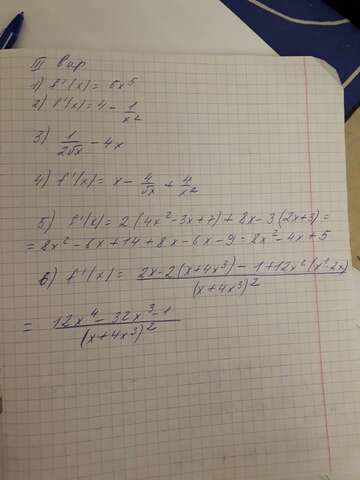 III вар
1) f'(x) = 6x⁵
2) f'(x) = 4 - 1/x²
3) 1/2√x - 4x
4) f'(x) = x - 4/√x + 4/x²
5) f'(x) = 2(4x²-3x+7) + 8x-3(2x+3) =
= 8x² - 6x + 14 + 8x - 6x - 9 = 8x² - 4x + 5
6) f'(x) = 2x-2(x+4x³) - 1+12x²(x²-2x)/(x+4x³)²
= 12x⁴ - 32x³-1/(x+4x³)²